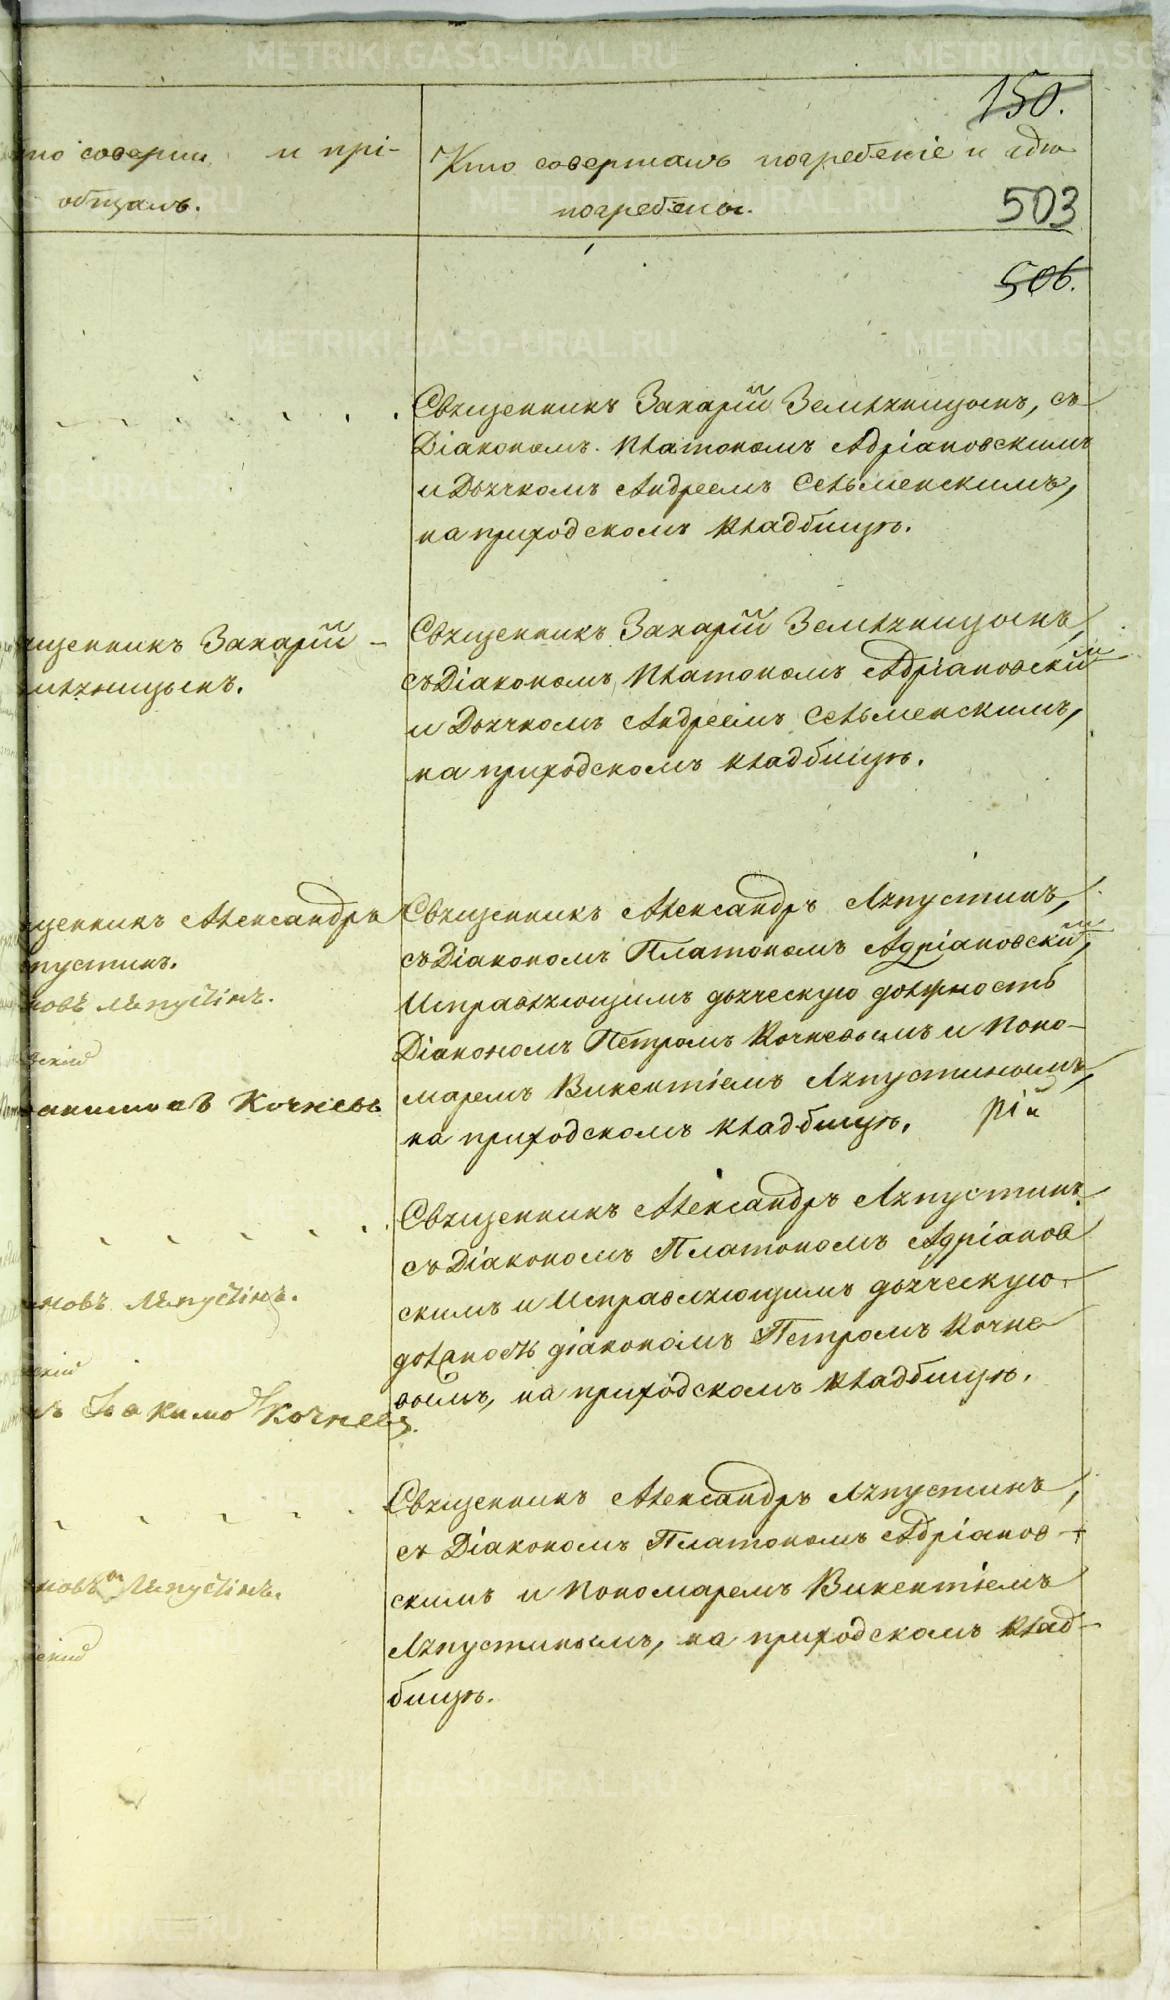 150.
Кто совершалъ погребеніе и гдѣ
погребены.
503
506.
и прі-
общалъ.
Священникъ Захарій Земляницынъ, съ
Діакономъ Платономъ Адріановскимъ
и Дьячкомъ Андреемъ Сельменскимъ,
на приходскомъ кладбищѣ.
Захарій
Священникъ Захарій Земляницынъ,
съ Діакономъ Платономъ Адріановскимъ
и Дьячкомъ Андреемъ Сельменскимъ,
на приходскомъ кладбищѣ.
Александръ
пустинъ.
Лѣпустинъ.
Кочневъ
Священникъ Александръ Ляпустинъ,
съ Діакономъ Платономъ Адріановским,
Исправляющимъ дьяческую должность
Діакономъ Петромъ Кочневымъ и Поно-
маремъ Викентіемъ Ляпустинымъ,
на приходскомъ кладбищѣ.
рій
Священникъ Александръ Ляпустинъ
съ Діакономъ Платономъ Адріанов
скимъ и Исправляющимъ дьяческую
должность діакономъ Петромъ Кочне
вымъ, на приходскомъ кладбищѣ.
новъ Лѣпустінъ.
Іоакимов Кочневъ
Священникъ Александръ Ляпустинъ,
съ Діакономъ Платономъ Адріанов-
скимъ и Пономаремъ Викентіемъ
Ляпустинымъ, на приходскомъ клад-
бищѣ.
новъ Лѣпустінъ.
METRIKI.GASO-URAL.RU